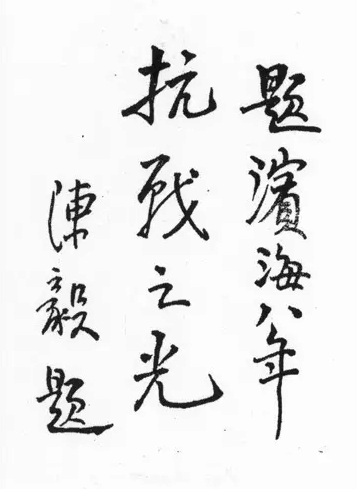 題濱海八年
抗战之光
陳毅題